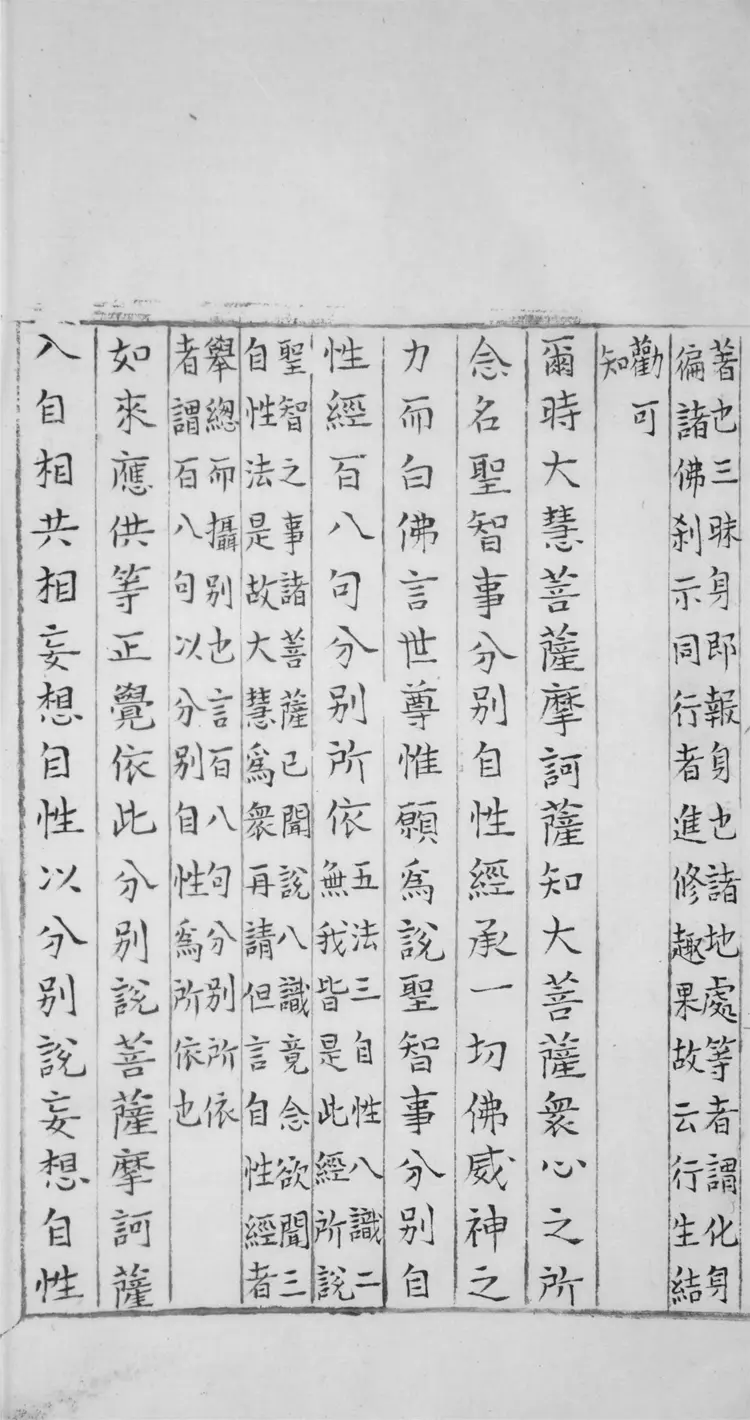 著也三昧身即報身也諸地處等者謂化身
徧諸佛刹示同行者進修趣果故云行生結
勸可
知
爾時大慧菩薩摩訶薩知大菩薩衆心之所
念名聖智事分别自性經承一切佛威神之
力而白佛言世尊惟願爲說聖智事分别自
性經百八句分别所依
五法三自性八識二
無我皆是此經所說
聖智之事諸菩薩已聞說八識竟念欲聞三
自性法是故大慧爲衆再請但言自性經者
舉總而攝别也言百八句分别所依
者謂百八句以分别自性爲所依也
如來應供等正覺依此分别說菩薩摩訶薩
入自相共相妄想自性以分别說妄想自性